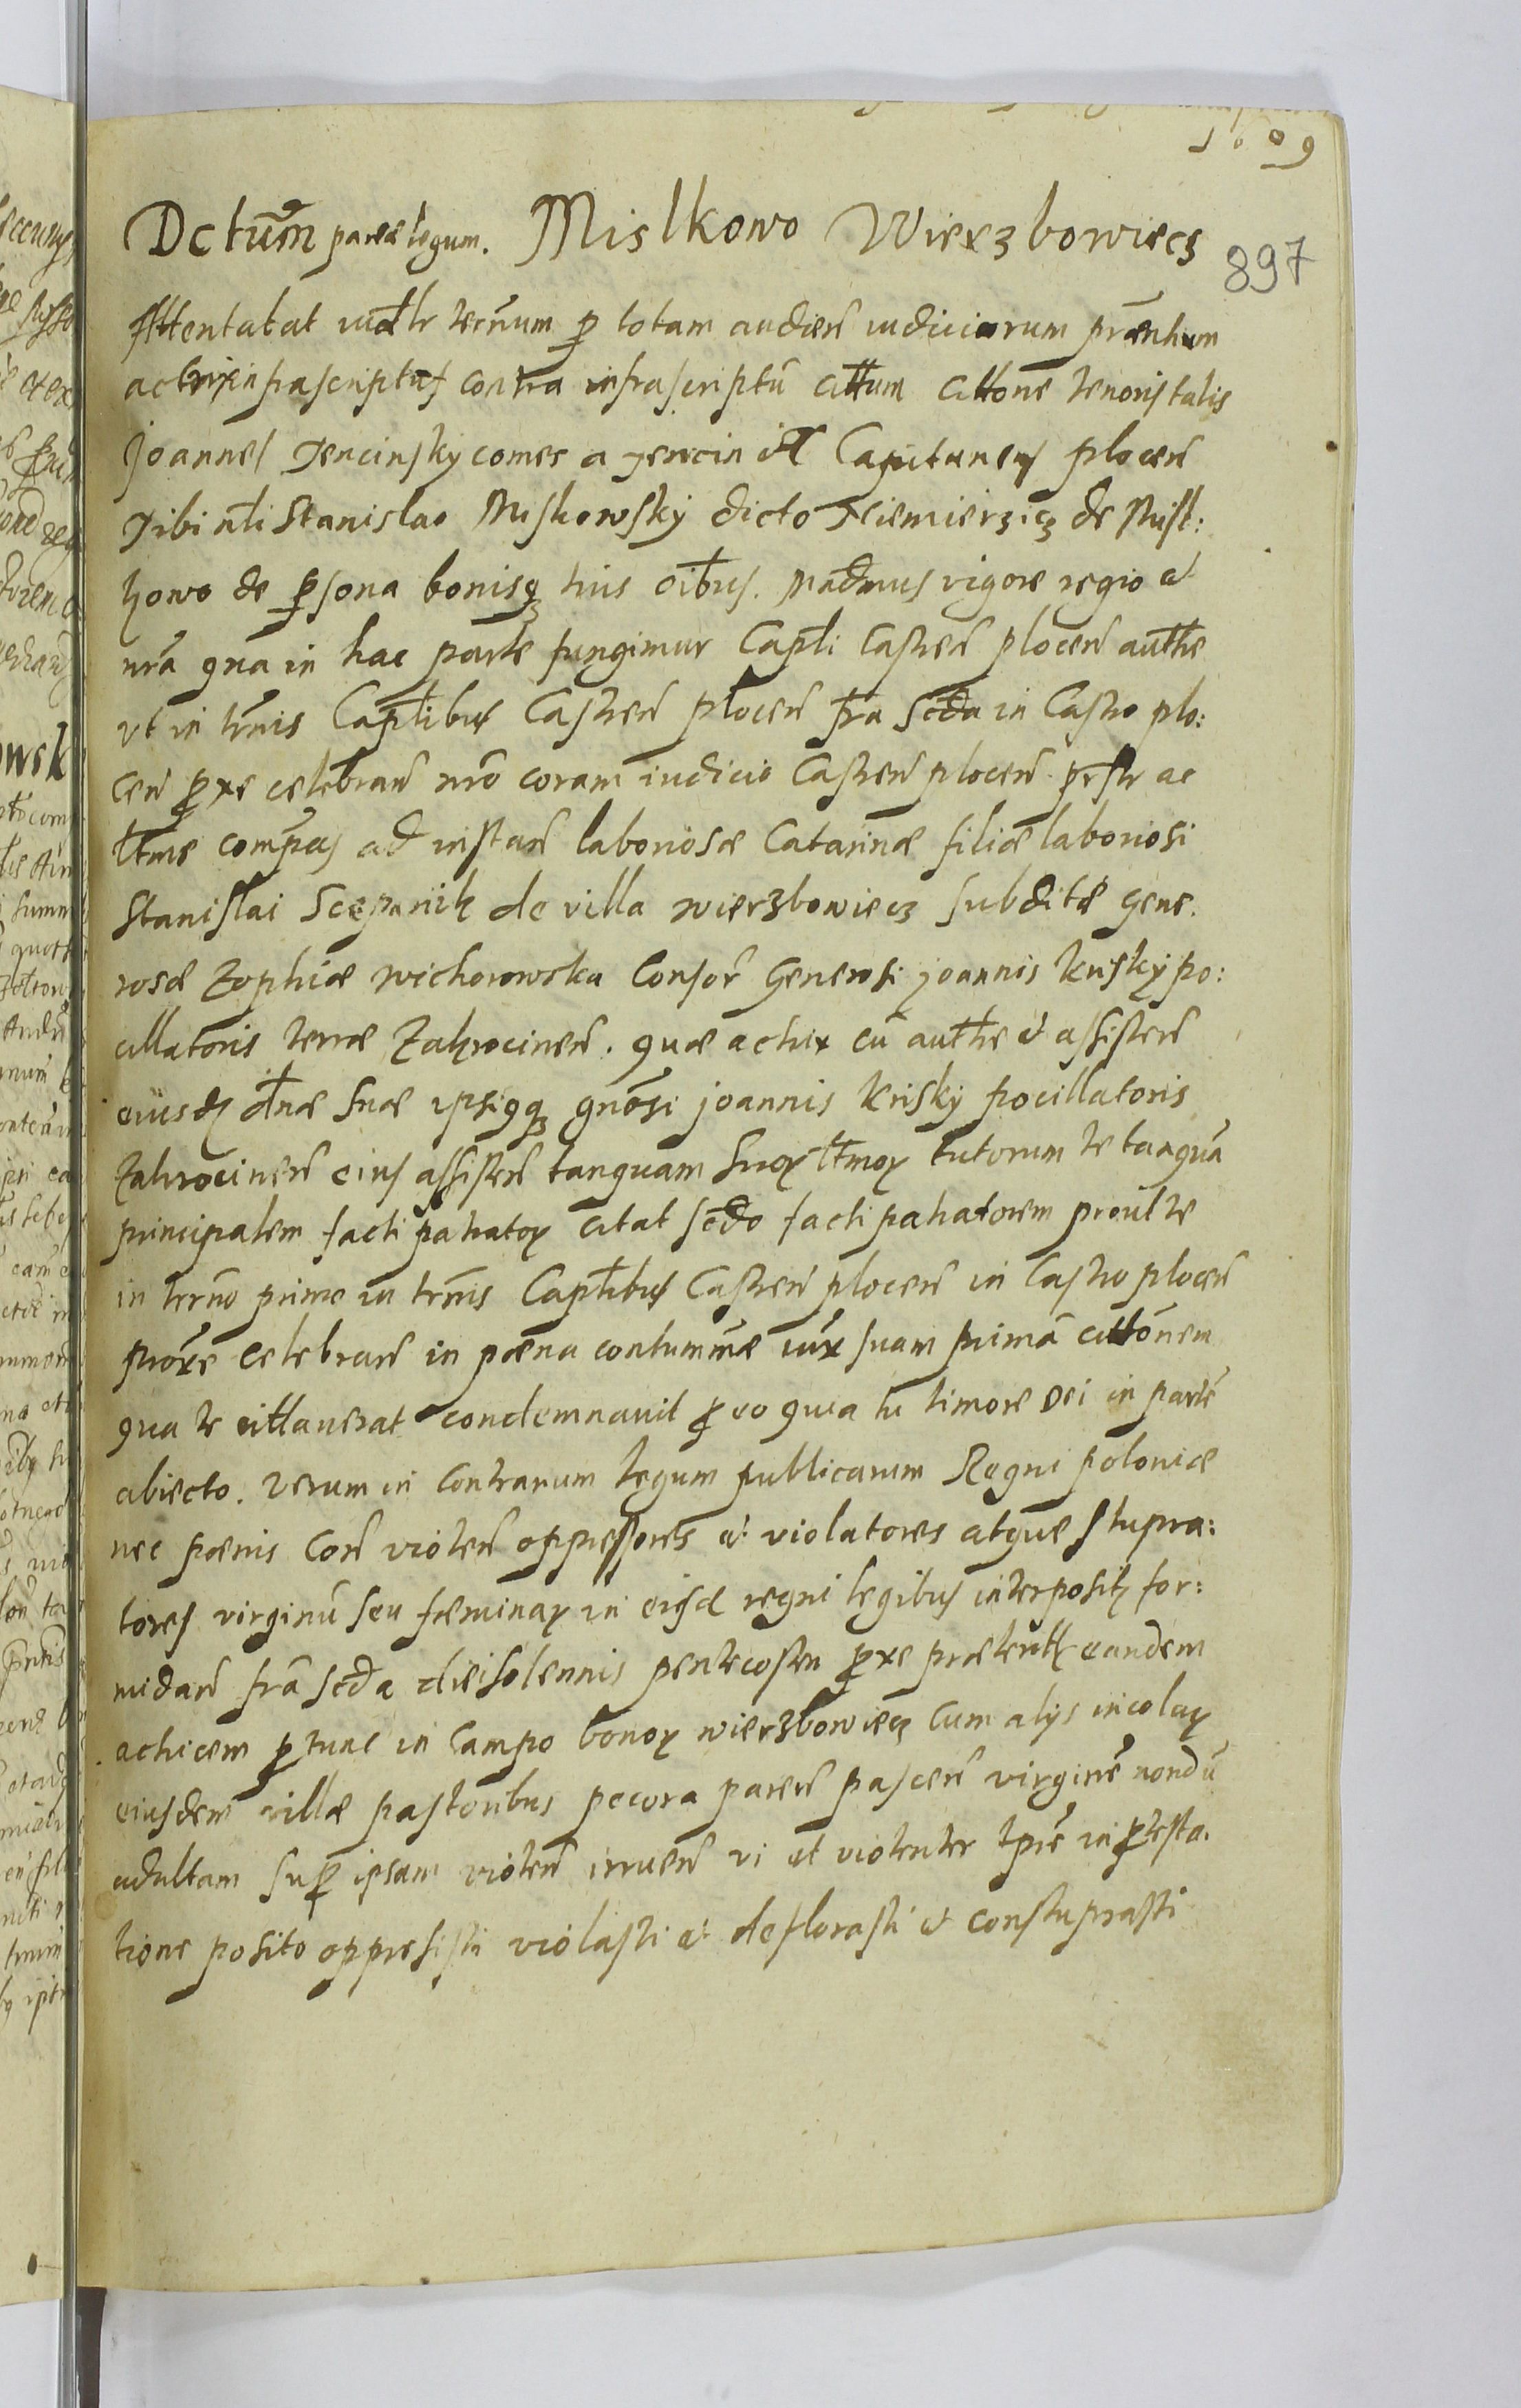 1609
897
Dctum̃ pareæ legum. Mislkowo Wierzbowiecz
Attentabat iudtr terñum p totam audien̄ iudiciorum prænhum
actrix infrascriptus contra infrascriptū cittum cittone tenoris talis
Joannes Tencinsky comes a Tencin et Capitaneus plocen̄
Tibi nli Stanislao Miskowsky dicto Niemierzicz de Misl:
kowo de psona bonisq tuis oibus. Madmus vigore regio et
nrã qua in hac parte fungimur Captli Castren̄ plocen̄ authte
vt in trmis Captlibus Castren̄ plocen̄ fra scda in Castro plo:
cen̄ pxe celebran̄ nrõ coram iudicio Castren̄ plocen̄ prstr ac
ltme compas ad instan̄ laboriosæ Catarinæ filiæ laboriosi
Stanislai Scepanik de villa wierzbowiecz subditæ Gene.
rosæ Zophiæ wichorowska Consor̃ Generosi joannis krisky po:
cillatoris terræ Zakrocinen̄. quæ actrix cū authte et assisten̄
eiusd dnæ suæ ipsiqq gnõsi joannis krisky pocillatoris
Zakrocinen̄ eius assisten̄ tanquam suor ltmor tutorum te tanquã
principalem facti patrator citat scdo facti patratorem prout te
in termõ primo in trmis Captlibus Castren̄ plocen̄ in Castro plocen̄
proxe celebran̄ in pæna contummæ iux suam primã cittõnem
qua te cittauerat condemnauit p eo quia tu timore Dei in partẽ
abiecto. verum in contrarium legum publicarum Regni poloniæ
nec pænis Con̄ violen̄ oppressores et violatores atque stupra:
tores virginū seu fæminar in eisd regni legibus interposit for:
midan̄ frã scda diei solennis pentecosten pxe præterit eandem
actricem p tunc in Campo bonor wierzbowiecz cum alijs incolar
eiusdem villæ pastoribus pecora paren̄ pascen̄ virginẽ nondū
adultam sup ipsam violen̄ irruen̄ vi et violenter tprẽ in ptesta.
tione posito opressisti violasti et deflorasti et constuprasti